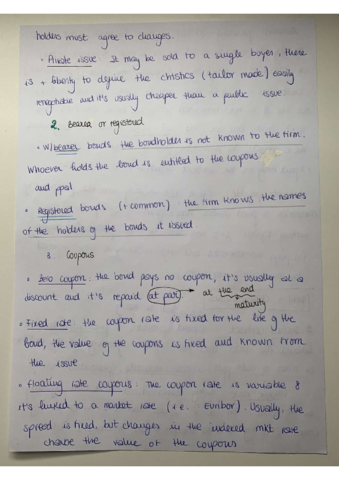 holders must agree to changes.
• Private issue It may be sold to a single buyer, there
is + liberty to define the chstics (tailor made) easily
renegotiable and it's usually cheaper than a public issue.
2. Bearer or registered
• W/ bearer bonds the bondholder is not known to the firm.
Whoever holds the bond is entitled to the coupons
and ppal
• Registered bonds (+ common) the firm knows the names
of the holders of the bonds it issued
3. Coupons
• Zero coupon: the bond pays no coupon, it's usually at a
discount and it's repaid at par → at the end
maturity
• Fixed rate the coupon rate is fixed for the life of the
bond, the value of the coupons is fixed and known from
the issue
• Floating rate coupons. The coupon rate is variable &
it's linked to a market rate (i.e. euribor). Usually, the
spread is fixed, but changes in the indexed mkt rate
change the value of the coupons